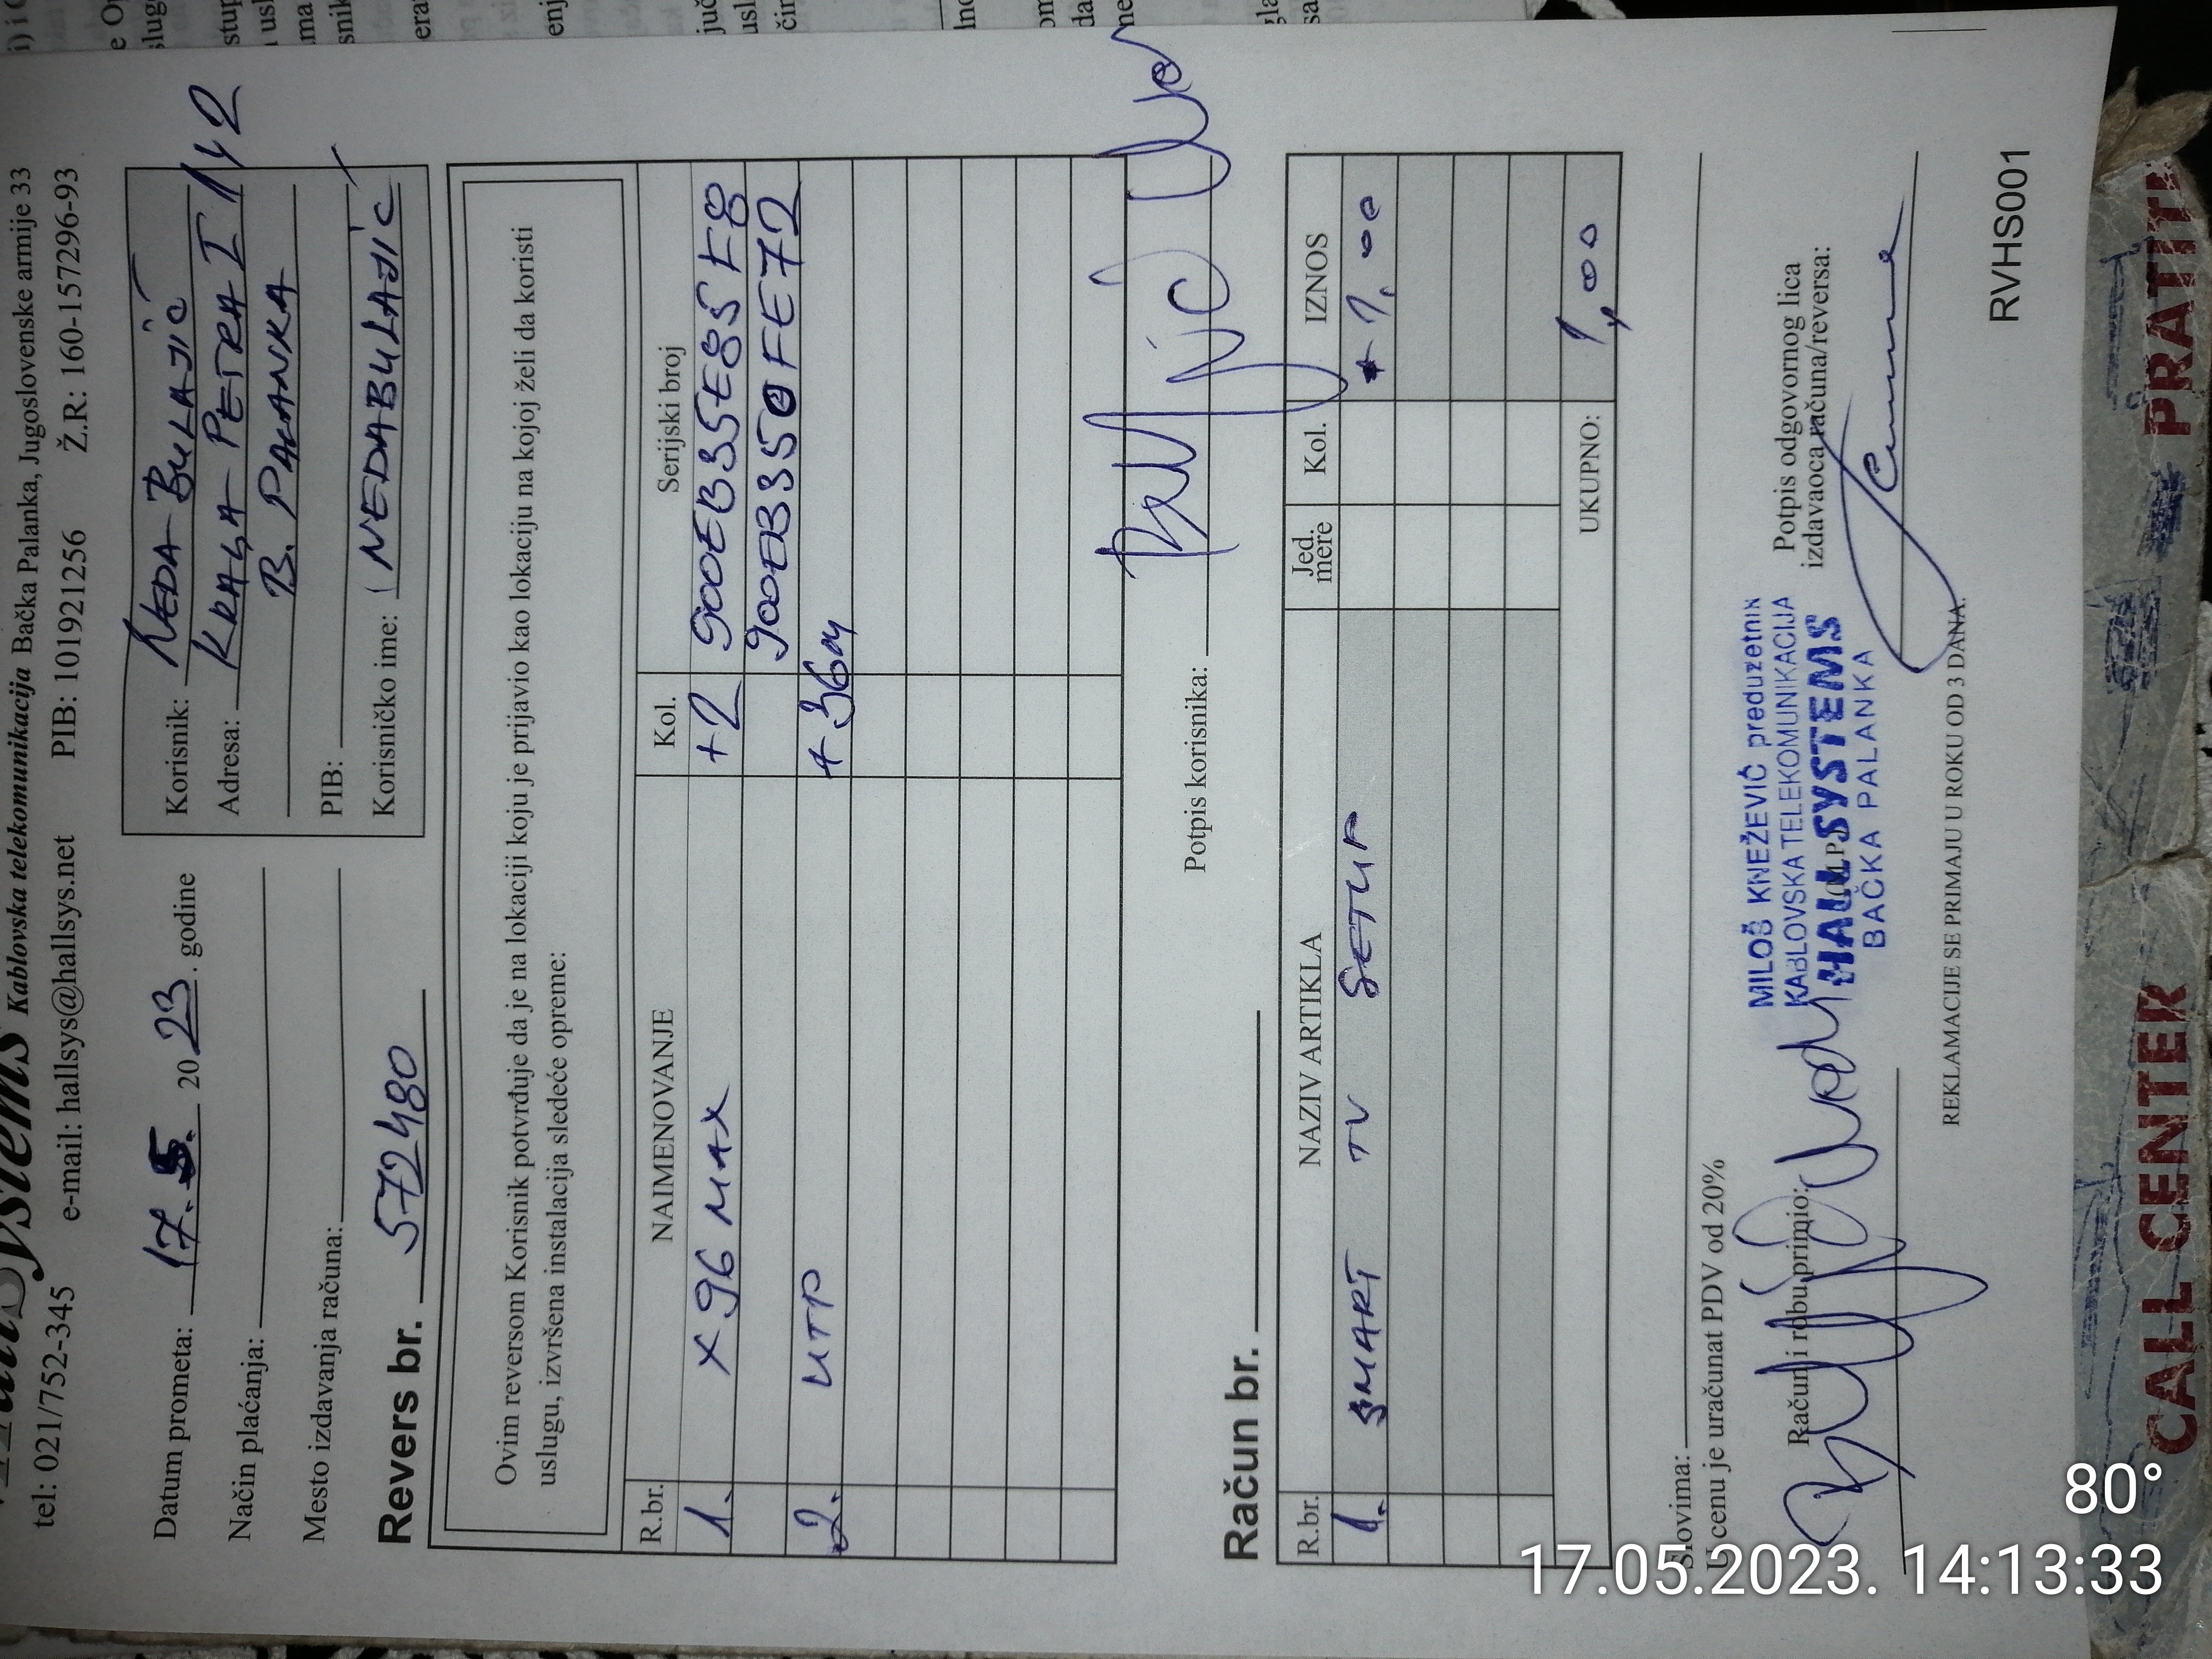 Systems Kablovska telekomunikacija Bačka Palanka, Jugoslovenske armije 33
tel: 021/752-345 e-mail: hallsys@hallsys.net PIB: 101921256 Ž.R: 160-157296-93
Datum prometa: 17.5. 2023. godine
Način plaćanja:
Mesto izdavanja računa:
Revers br. 572480
Korisnik: NEDA BULAJIĆ
Adresa: KRALJA PETRA I
B. PALANKA
PIB:
Korisničko ime: NEDABULAJIC
Ovim reversom Korisnik potvrđuje da je na lokaciji koju je prijavio kao lokaciju na kojoj želi da koristi
uslugu, izvršena instalacija sledeće opreme:
R.br. NAIMENOVANJE Kol. Serijski broj
1. X96 MAX +2 900EB35E85F8
900EB350FE72
2. UTP +36m
Potpis korisnika:
Račun br.
R.br. NAZIV ARTIKLA Jed. mere Kol. IZNOS
1. SMART TV SETUP 1,00
UKUPNO: 1,00
Slovima:
U cenu je uračunat PDV od 20%
Račun i robu primio:
MILOŠ KNEŽEVIĆ preduzetnik
KABLOVSKA TELEKOMUNIKACIJA
HALL SYSTEMS
BAČKA PALANKA
Potpis odgovornog lica
izdavaoca računa/reversa:
REKLAMACIJE SE PRIMAJU U ROKU OD 3 DANA.
RVHS001
CALL CENTER
80°
17.05.2023. 14:13:33